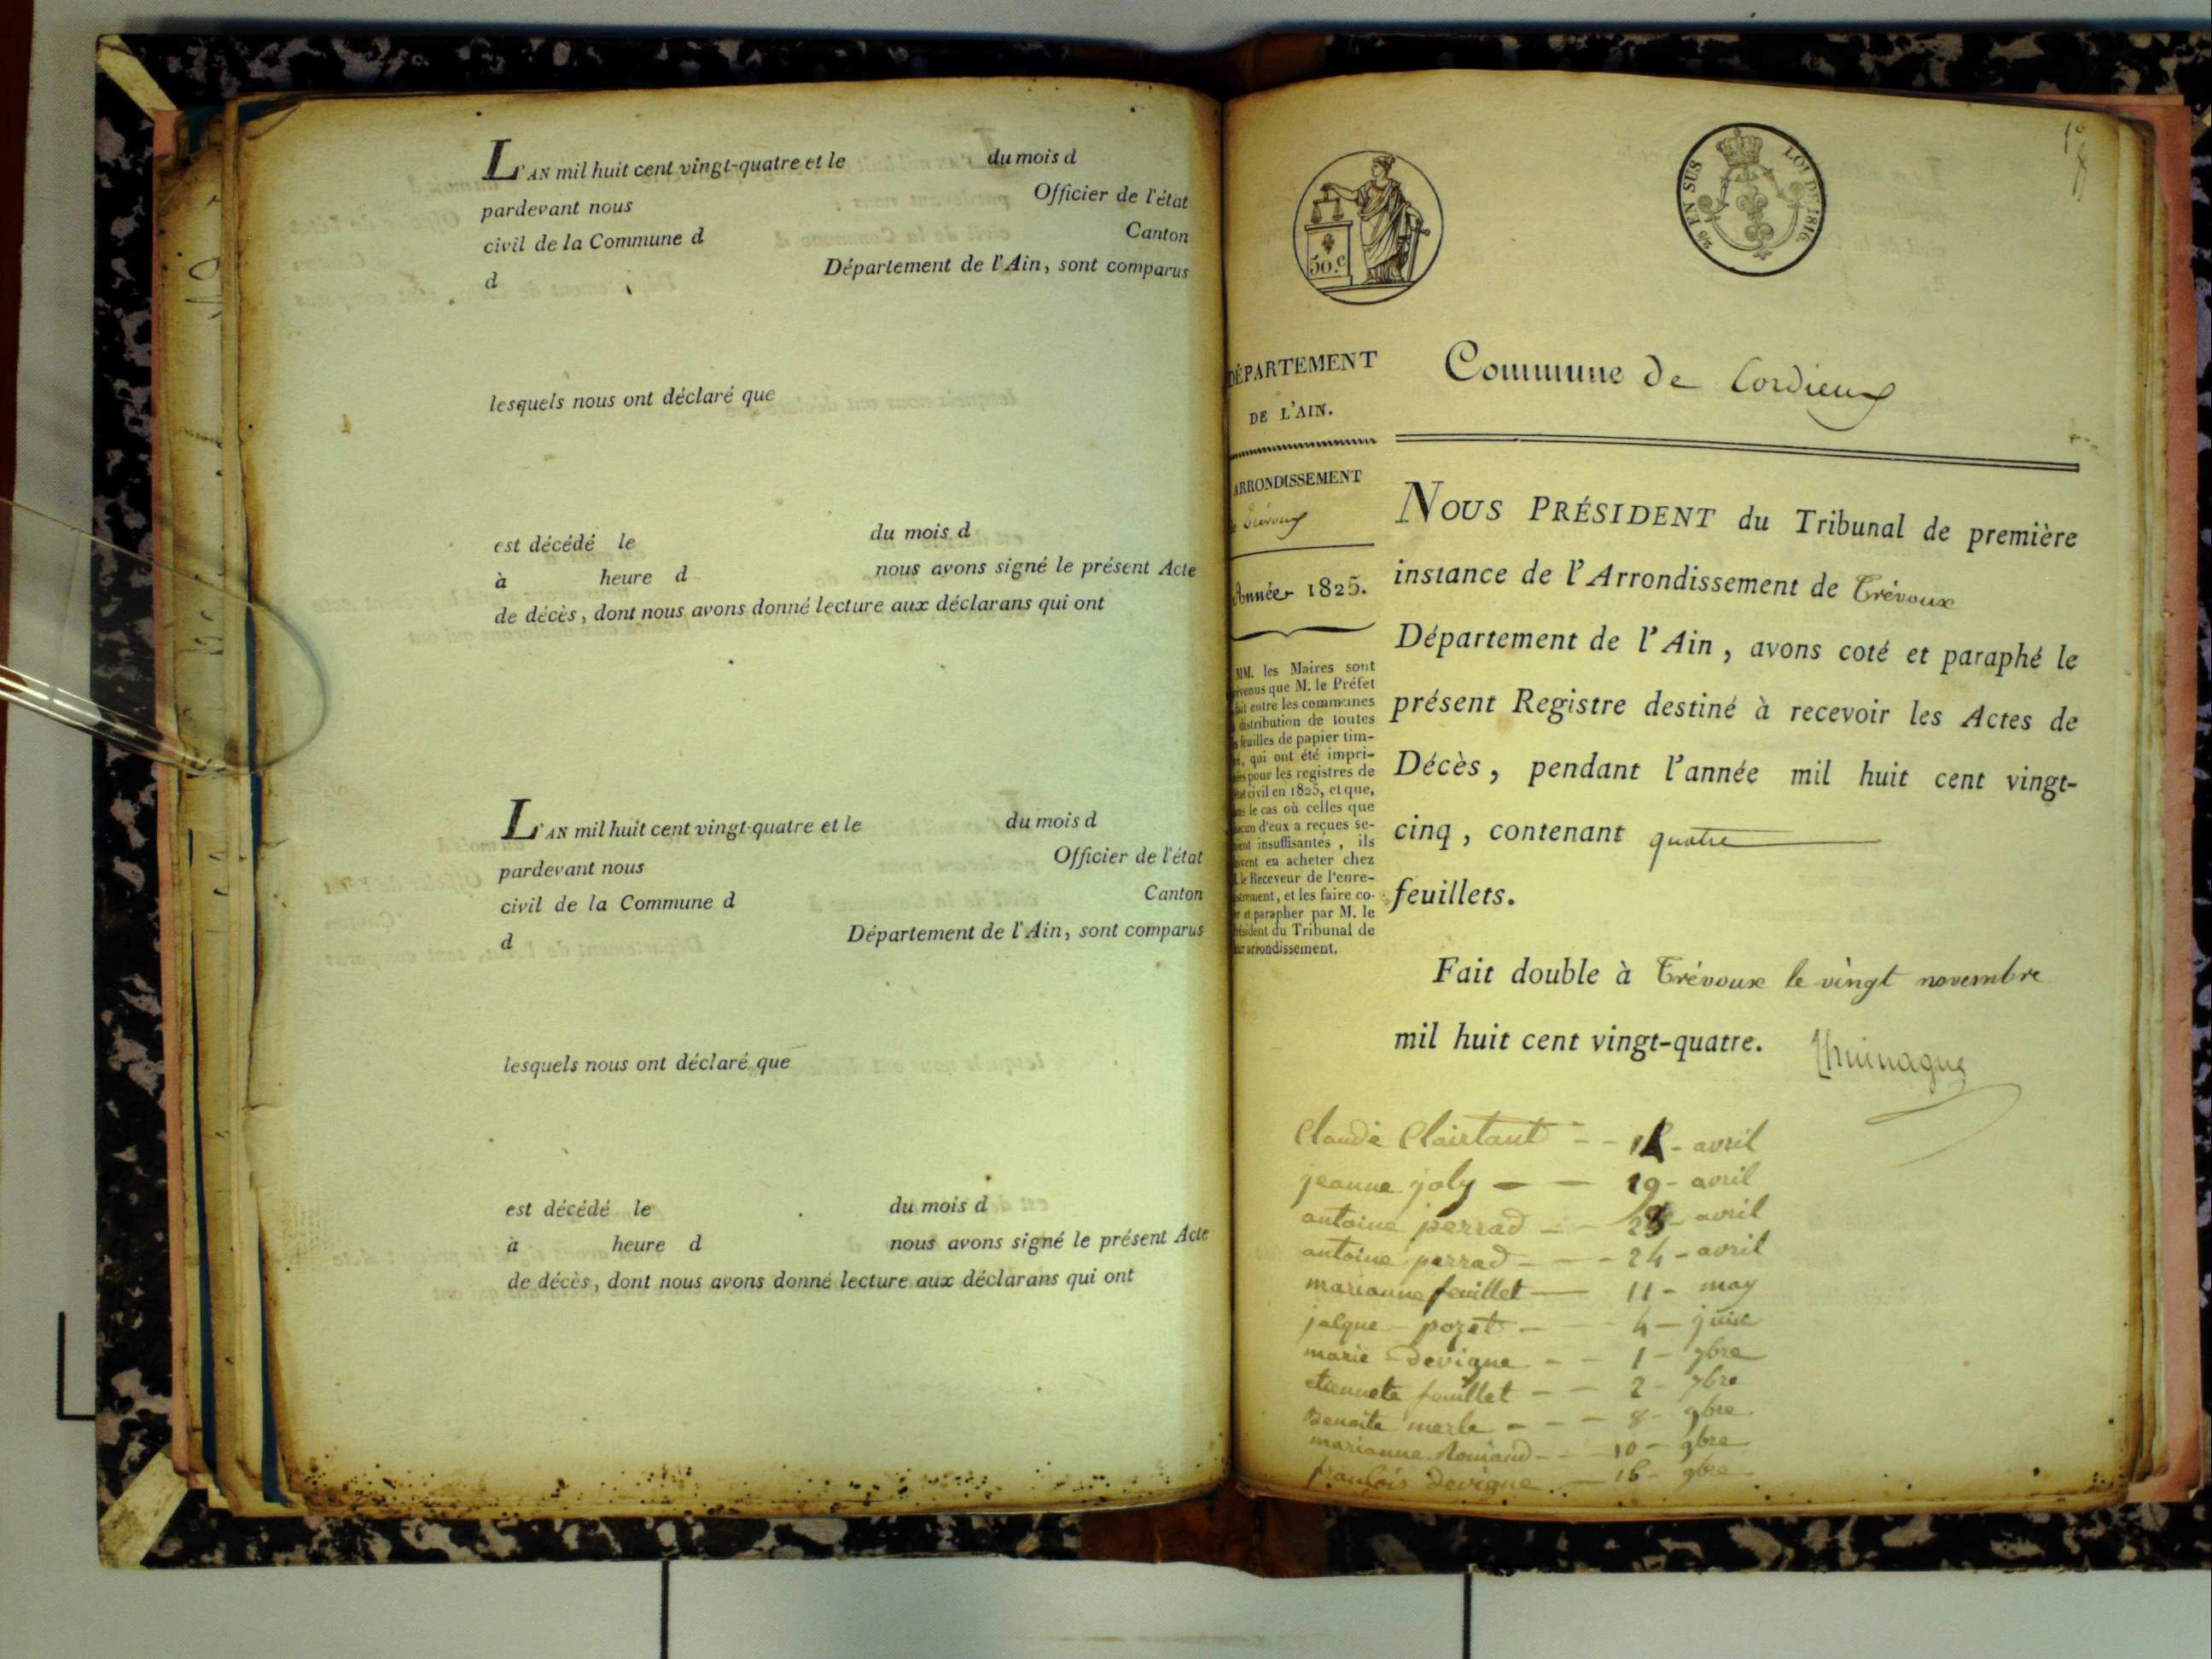 L'AN mil huit cent vingt-quatre et le du mois d
pardevant nous Officier de l'état
civil de la Commune d Canton
d Département de l'Ain, sont comparus
lesquels nous ont déclaré que
est décédé le du mois d
à heure d nous avons signé le présent Acte
de décès, dont nous avons donné lecture aux déclarans qui ont
L'AN mil huit cent vingt-quatre et le du mois d
pardevant nous Officier de l'état
civil de la Commune d Canton
d Département de l'Ain, sont comparus
lesquels nous ont déclaré que
est décédé le du mois d
à heure d nous avons signé le présent Acte
de décès, dont nous avons donné lecture aux déclarans qui ont
50.c
% EN SUS LOI DE 1816.
DÉPARTEMENT
DE L'AIN.
ARRONDISSEMENT
Trévoux
Année 1825.
MM. les Maires sont
que M. le Préfet
entre les communes
distribution de toutes
feuilles de papier tim-
qui ont été impri-
pour les registres de
civil en 1825, et que,
le cas où celles que
d'eux a reçues se-
insuffisantes, ils
en acheter chez
le Receveur de l'enre-
et les faire co-
et parapher par M. le
du Tribunal de
arrondissement.
Commune de Cordieux
NOUS PRÉSIDENT du Tribunal de première
instance de l'Arrondissement de Trévoux
Département de l'Ain, avons coté et paraphé le
présent Registre destiné à recevoir les Actes de
Décès, pendant l'année mil huit cent vingt-
cinq, contenant quatre
feuillets.
Fait double à Trévoux le vingt novembre
mil huit cent vingt-quatre.
Claude Clairtant - - avril
jeanne joly - - 19 - avril
antoine perrad - - avril
antoine perrad - - - 24 - avril
marianne feuillet - 11 - may
jacque pozet - - 4 - juin
marie Devigne - - 1 - 7bre
etiennete feuillet - - 2 - 7bre
Benoite merle - - - 8 - 9bre
marianne - - 10 - 9bre
francois Devigne - 16 - 9bre